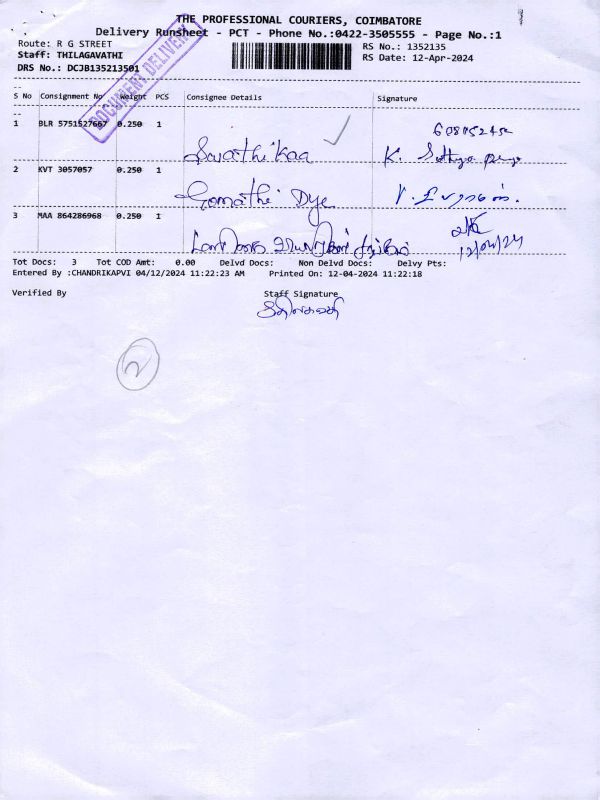 THE PROFESSIONAL COURIERS, COIMBATORE
Delivery Runsheet - PCT - Phone No.:0422-3505555 - Page No.:1
Route: R G STREET
RS No.: 1352135
Staff: THILAGAVATHI
RS Date: 12-Apr-2024
DRS No.: DCJB135213501
DOCUMENT DELIVERY
S No Consignment No Weight PCS Consignee Details Signature
1 BLR 5751527667 0.250 1
K.
2 KVT 3057057 0.250 1 Gomathi Dye
3 MAA 864286968 0.250 1
12/04/24
Tot Docs: 3 Tot COD Amt: 0.00 Delvd Docs: Non Delvd Docs: Delvy Pts:
Entered By :CHANDRIKAPVI 04/12/2024 11:22:23 AM Printed On: 12-04-2024 11:22:18
Verified By Staff Signature
2